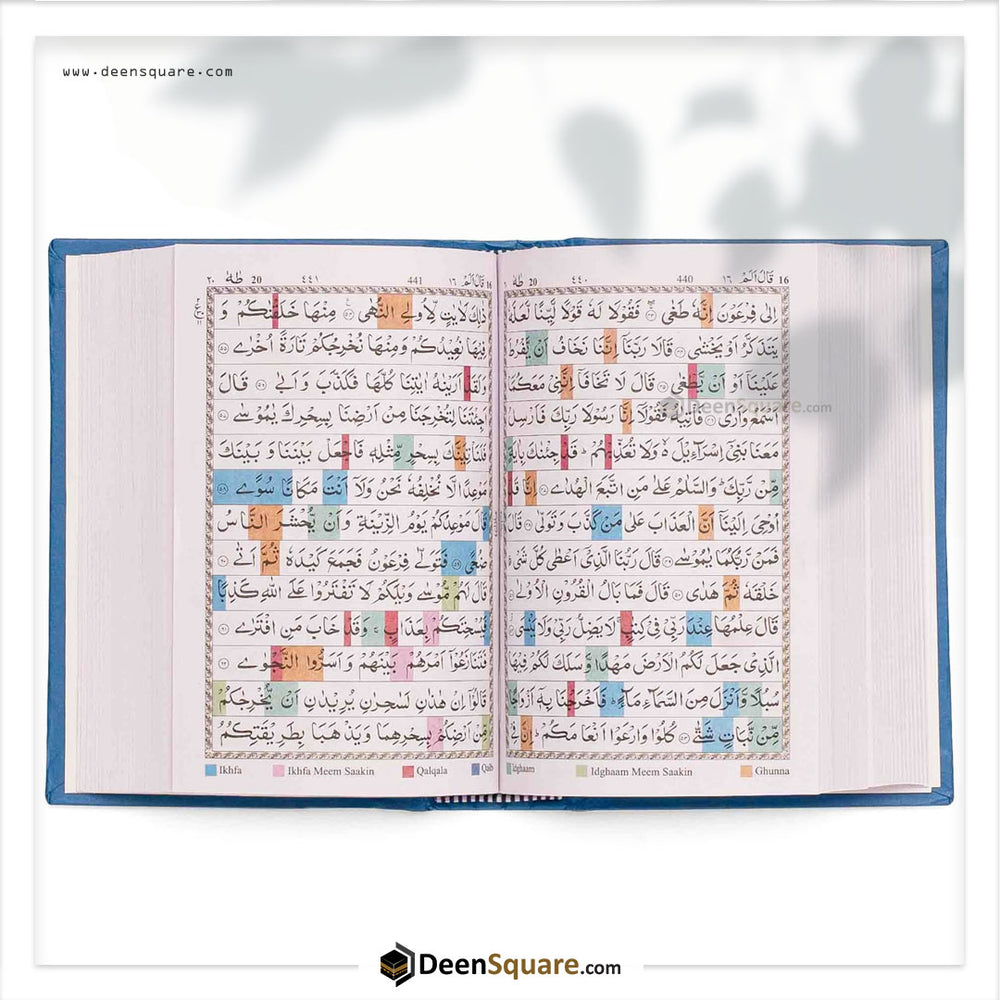 www.deensquare.com
١٦ قَالَ اَلَمْ 16 440 ٤٤٠ طٰهٰ 20
اِلٰى فِرْعَوْنَ اِنَّهٗ طَغٰى ۝٤٣ فَقُوْلَا لَهٗ قَوْلًا لَّيِّنًا لَّعَلَّهٗ
يَتَذَكَّرُ اَوْ يَخْشٰى ۝٤٤ قَالَا رَبَّنَاۤ اِنَّنَا نَخَافُ اَنْ يَّفْرُطَ
عَلَيْنَاۤ اَوْ اَنْ يَّطْغٰى ۝٤٥ قَالَ لَا تَخَافَاۤ اِنَّنِىْ مَعَكُمَاۤ
اَسْمَعُ وَاَرٰى ۝٤٦ فَاْتِيٰهُ فَقُوْلَاۤ اِنَّا رَسُوْلَا رَبِّكَ فَاَرْسِلْ
مَعَنَا بَنِىْۤ اِسْرَآءِيْلَ ۙ وَلَا تُعَذِّبْهُمْ ؕ قَدْ جِئْنٰكَ بِاٰيَةٍ
مِّنْ رَّبِّكَ ؕ وَالسَّلٰمُ عَلٰى مَنِ اتَّبَعَ الْهُدٰى ۝٤٧ اِنَّا قَدْ
اُوْحِىَ اِلَيْنَاۤ اَنَّ الْعَذَابَ عَلٰى مَنْ كَذَّبَ وَتَوَلّٰى ۝٤٨ قَالَ
فَمَنْ رَّبُّكُمَا يٰمُوْسٰى ۝٤٩ قَالَ رَبُّنَا الَّذِىْۤ اَعْطٰى كُلَّ شَىْءٍ
خَلْقَهٗ ثُمَّ هَدٰى ۝٥٠ قَالَ فَمَا بَالُ الْقُرُوْنِ الْاُوْلٰى
قَالَ عِلْمُهَا عِنْدَ رَبِّىْ فِىْ كِتٰبٍ ۚ لَا يَضِلُّ رَبِّىْ وَلَا يَنْسَى
الَّذِىْ جَعَلَ لَكُمُ الْاَرْضَ مَهْدًا وَّسَلَكَ لَكُمْ فِيْهَا
سُبُلًا وَّاَنْزَلَ مِنَ السَّمَآءِ مَآءً ؕ فَاَخْرَجْنَا بِهٖۤ اَزْوَاجًا
مِّنْ نَّبَاتٍ شَتّٰى ۝٥٣ كُلُوْا وَارْعَوْا اَنْعَامَكُمْ ؕ اِنَّ فِىْ
Idghaam Idghaam Meem Saakin Ghunna
16 قَالَ اَلَمْ ١٦ 441 ٤٤١ 20 طٰهٰ ٢٠
ذٰلِكَ لَاٰيٰتٍ لِّاُولِى النُّهٰى ۝٥٤ مِنْهَا خَلَقْنٰكُمْ وَ
فِيْهَا نُعِيْدُكُمْ وَمِنْهَا نُخْرِجُكُمْ تَارَةً اُخْرٰى ۝٥٥
وَلَقَدْ اَرَيْنٰهُ اٰيٰتِنَا كُلَّهَا فَكَذَّبَ وَاَبٰى ۝٥٦ قَالَ
اَجِئْتَنَا لِتُخْرِجَنَا مِنْ اَرْضِنَا بِسِحْرِكَ يٰمُوْسٰى ۝٥٧
فَلَنَاْتِيَنَّكَ بِسِحْرٍ مِّثْلِهٖ فَاجْعَلْ بَيْنَنَا وَ بَيْنَكَ
مَوْعِدًا لَّا نُخْلِفُهٗ نَحْنُ وَلَاۤ اَنْتَ مَكَانًا سُوًى ۝٥٨
قَالَ مَوْعِدُكُمْ يَوْمُ الزِّيْنَةِ وَاَنْ يُّحْشَرَ النَّاسُ
ضُحًى ۝٥٩ فَتَوَلّٰى فِرْعَوْنُ فَجَمَعَ كَيْدَهٗ ثُمَّ اَتٰى ۝٦٠
قَالَ لَهُمْ مُّوْسٰى وَيْلَكُمْ لَا تَفْتَرُوْا عَلَى اللّٰهِ كَذِبًا
فَيُسْحِتَكُمْ بِعَذَابٍ ۚ وَقَدْ خَابَ مَنِ افْتَرٰى ۝٦١
فَتَنَازَعُوْۤا اَمْرَهُمْ بَيْنَهُمْ وَاَسَرُّوا النَّجْوٰى ۝٦٢
قَالُوْۤا اِنْ هٰذٰنِ لَسٰحِرٰنِ يُرِيْدٰنِ اَنْ يُّخْرِجٰكُمْ
مِّنْ اَرْضِكُمْ بِسِحْرِهِمَا وَيَذْهَبَا بِطَرِيْقَتِكُمُ
Ikhfa Ikhfa Meem Saakin Qalqala Qalb
DeenSquare.com
DeenSquare.com